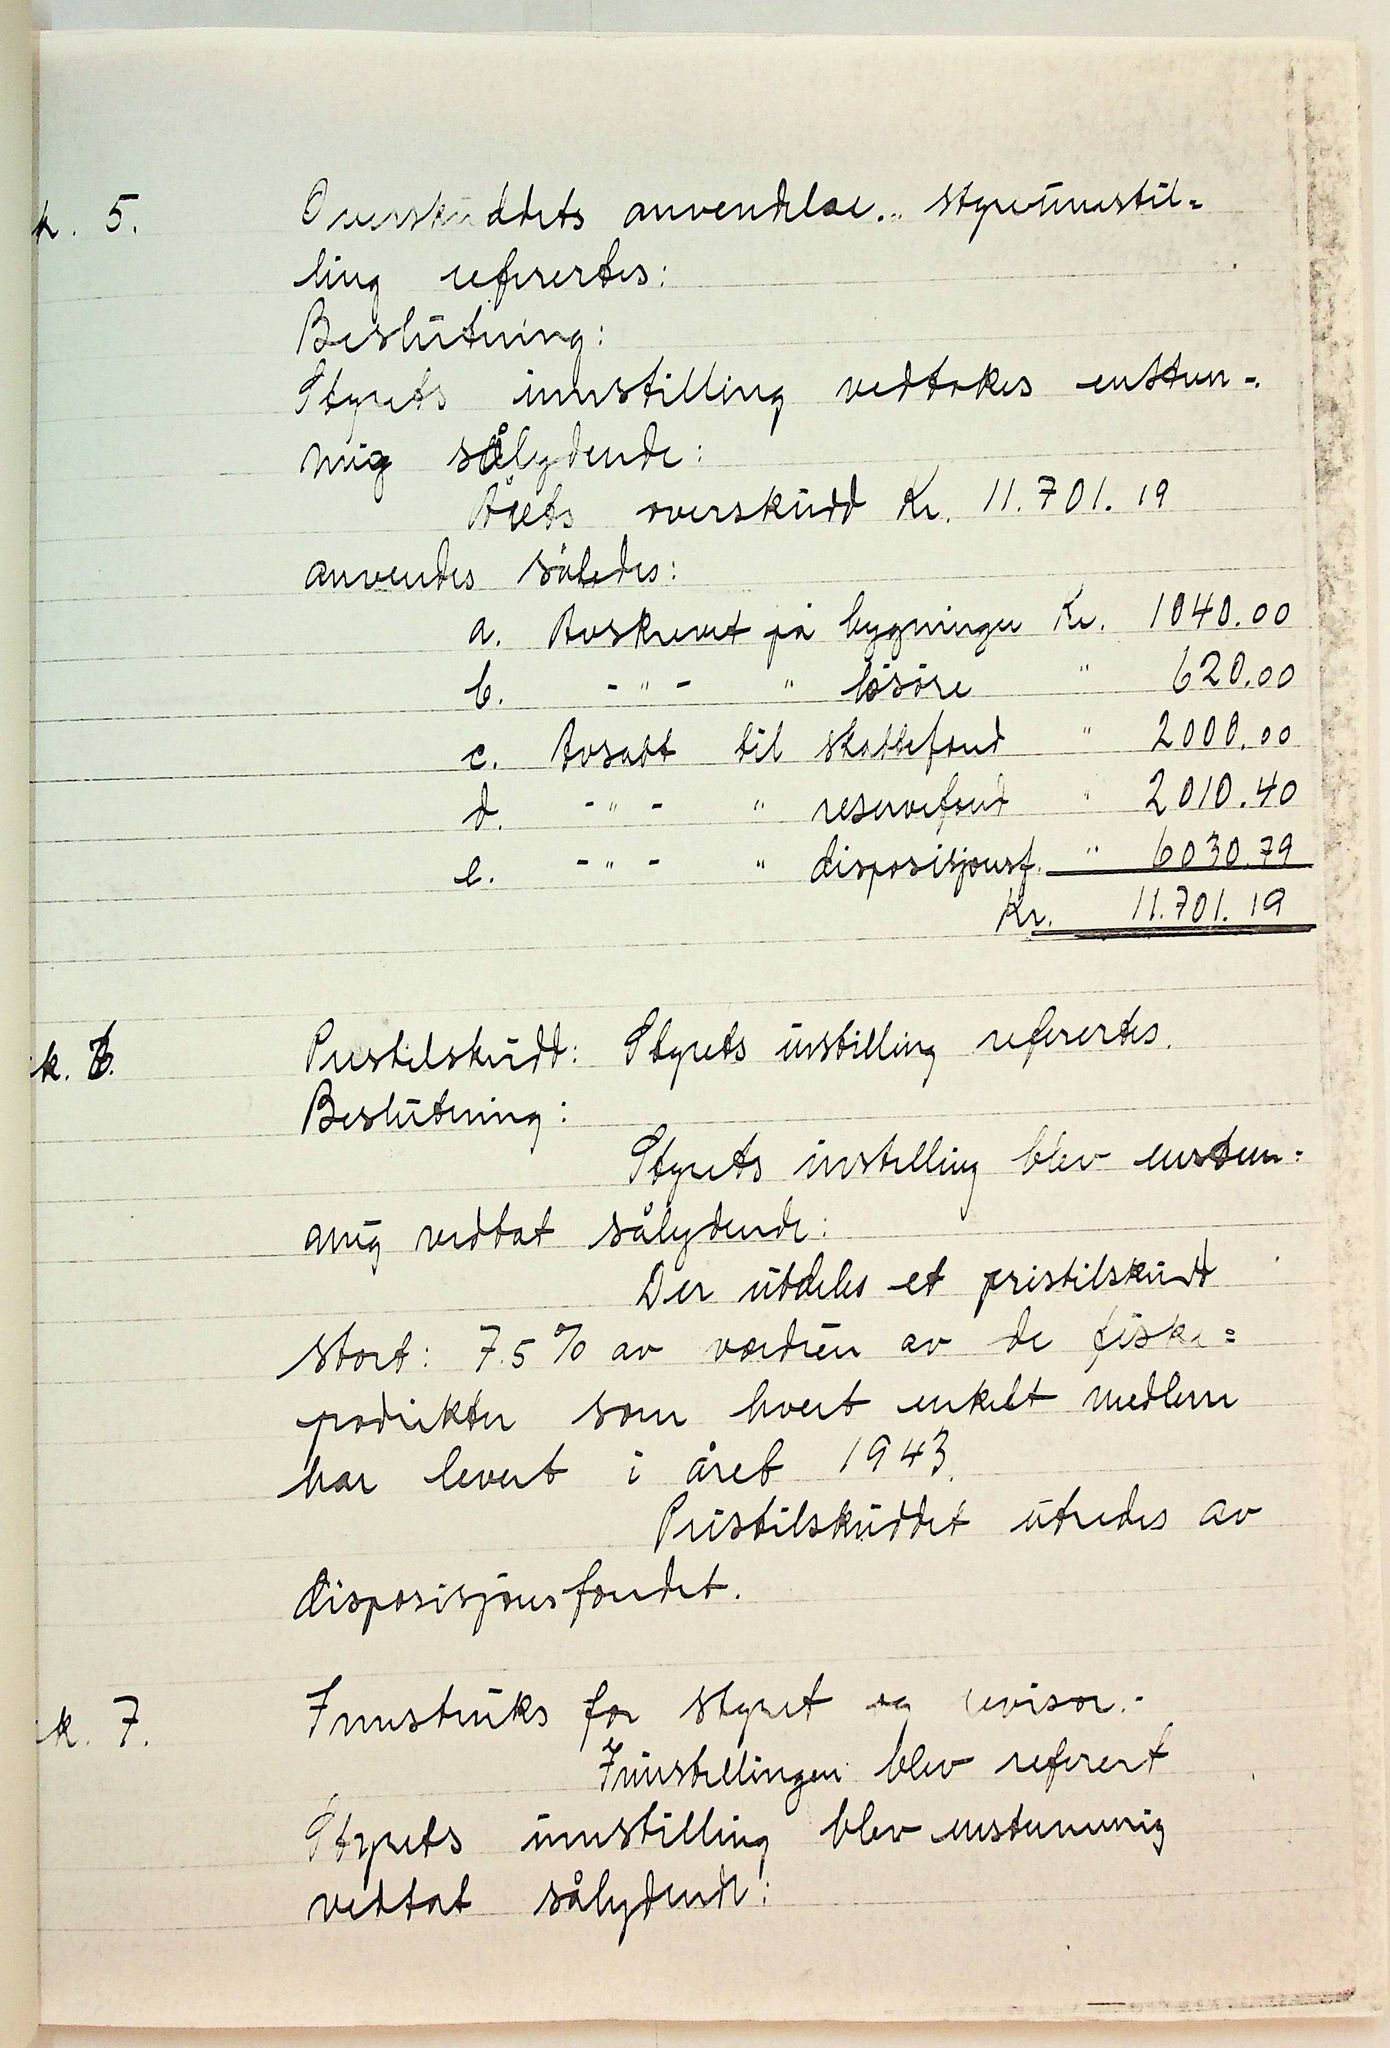 k. 5. Overskuddets anvendelse.. styreinnstil-
ling refirertes:
Beslutning:
Styrets innstilling vedtokes enstem-
mig sålydende:
Årets overskudd Kr. 11.701.19
anvendes således:
a. Avskrevet på bygninger Kr. 1040.00
b. - " - " løsøre " 620.00
c. Avsatt til skattefond " 2000.00
d. - " - " reservefond " 2010.40
e. - " - " disposisjonsf. " 6030.79
Kr. 11.701.19
k. 6. Pristilskudd: Styrets instilling refirertes.
Beslutning:
Styrets instilling blev enstem-
mig vedtat sålydende:
Der utdeles et pristilskudd
stort: 7.5% av verdien av de fiske=
produkter som hvert enkelt medlem
har levert i året 1943.
Pristilskuddet utredes av
disposisjonsfondet.
k. 7. Innstruks for styret og revisor.-
Innstillingen blev referert
Styrets innstilling blev enstemmig
vedtat sålydende: